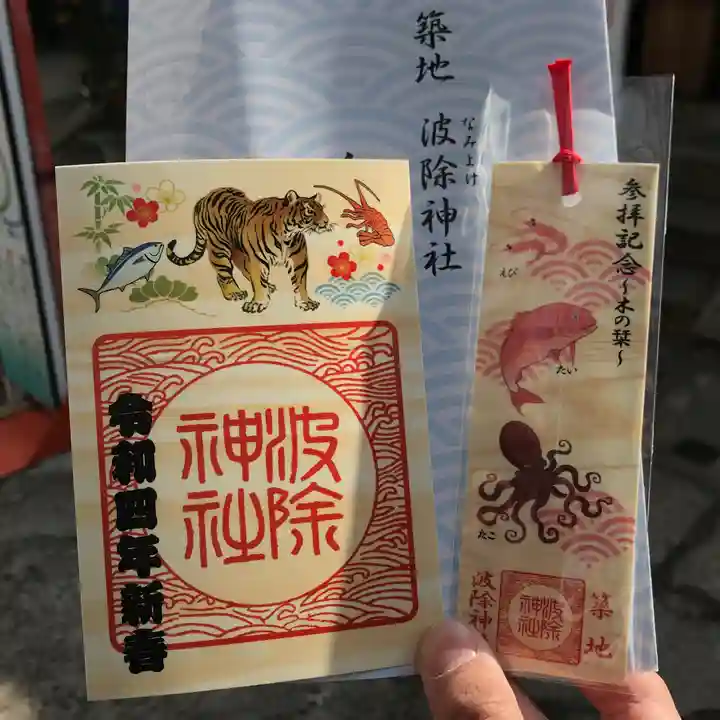 築地 波除神社
なみよけ
令和四年新春
波除
神社
参拝記念～木の栞～
えび
たい
たこ
築地
波除神
波除
神社